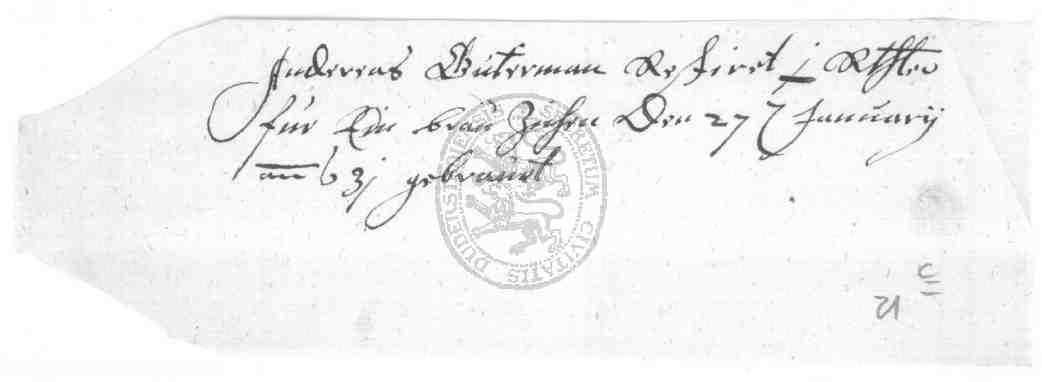 Andereas Guterman Restiret j Rthlr
für Ein brau Zichen Den 27 January
ann 31 gebrauet
SECRETUM CIVITATIS DUDERS
21
C